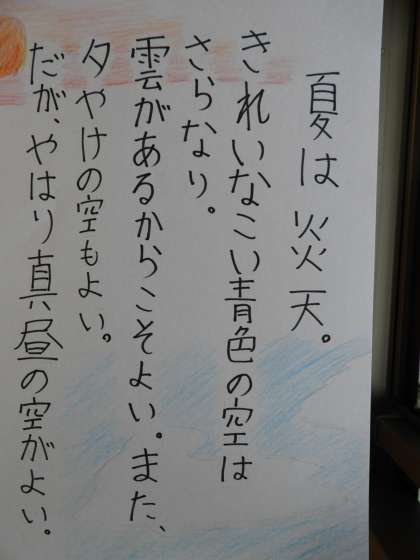 夏は炎天。
きれいなこい青色の空は
さらなり。
雲があるからこそよい。また、
夕やけの空もよい。
だが、やはり真昼の空がよい。